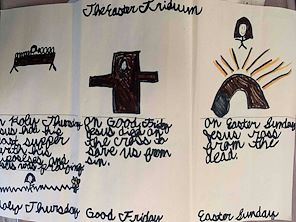 The Easter Triduum
On Holy Thursday
Jesus had his
last supper
with his
and
Holy Thursday
On Good Friday
Jesus died on
the cross to
save us from
sin.
Good Friday
On Easter Sunday
Jesus ross
from the
dead.
Easter Sunday